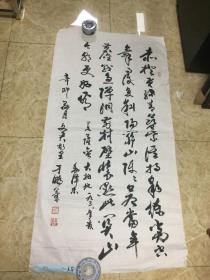 赤橙黄绿青蓝紫谁持彩练当空
舞雨后复斜阳关山阵々苍当年
鏖战急弹洞前村壁装点此关山
今朝更好看 菩萨蛮 大柏地 一九三三年夏
毛泽东
辛卯